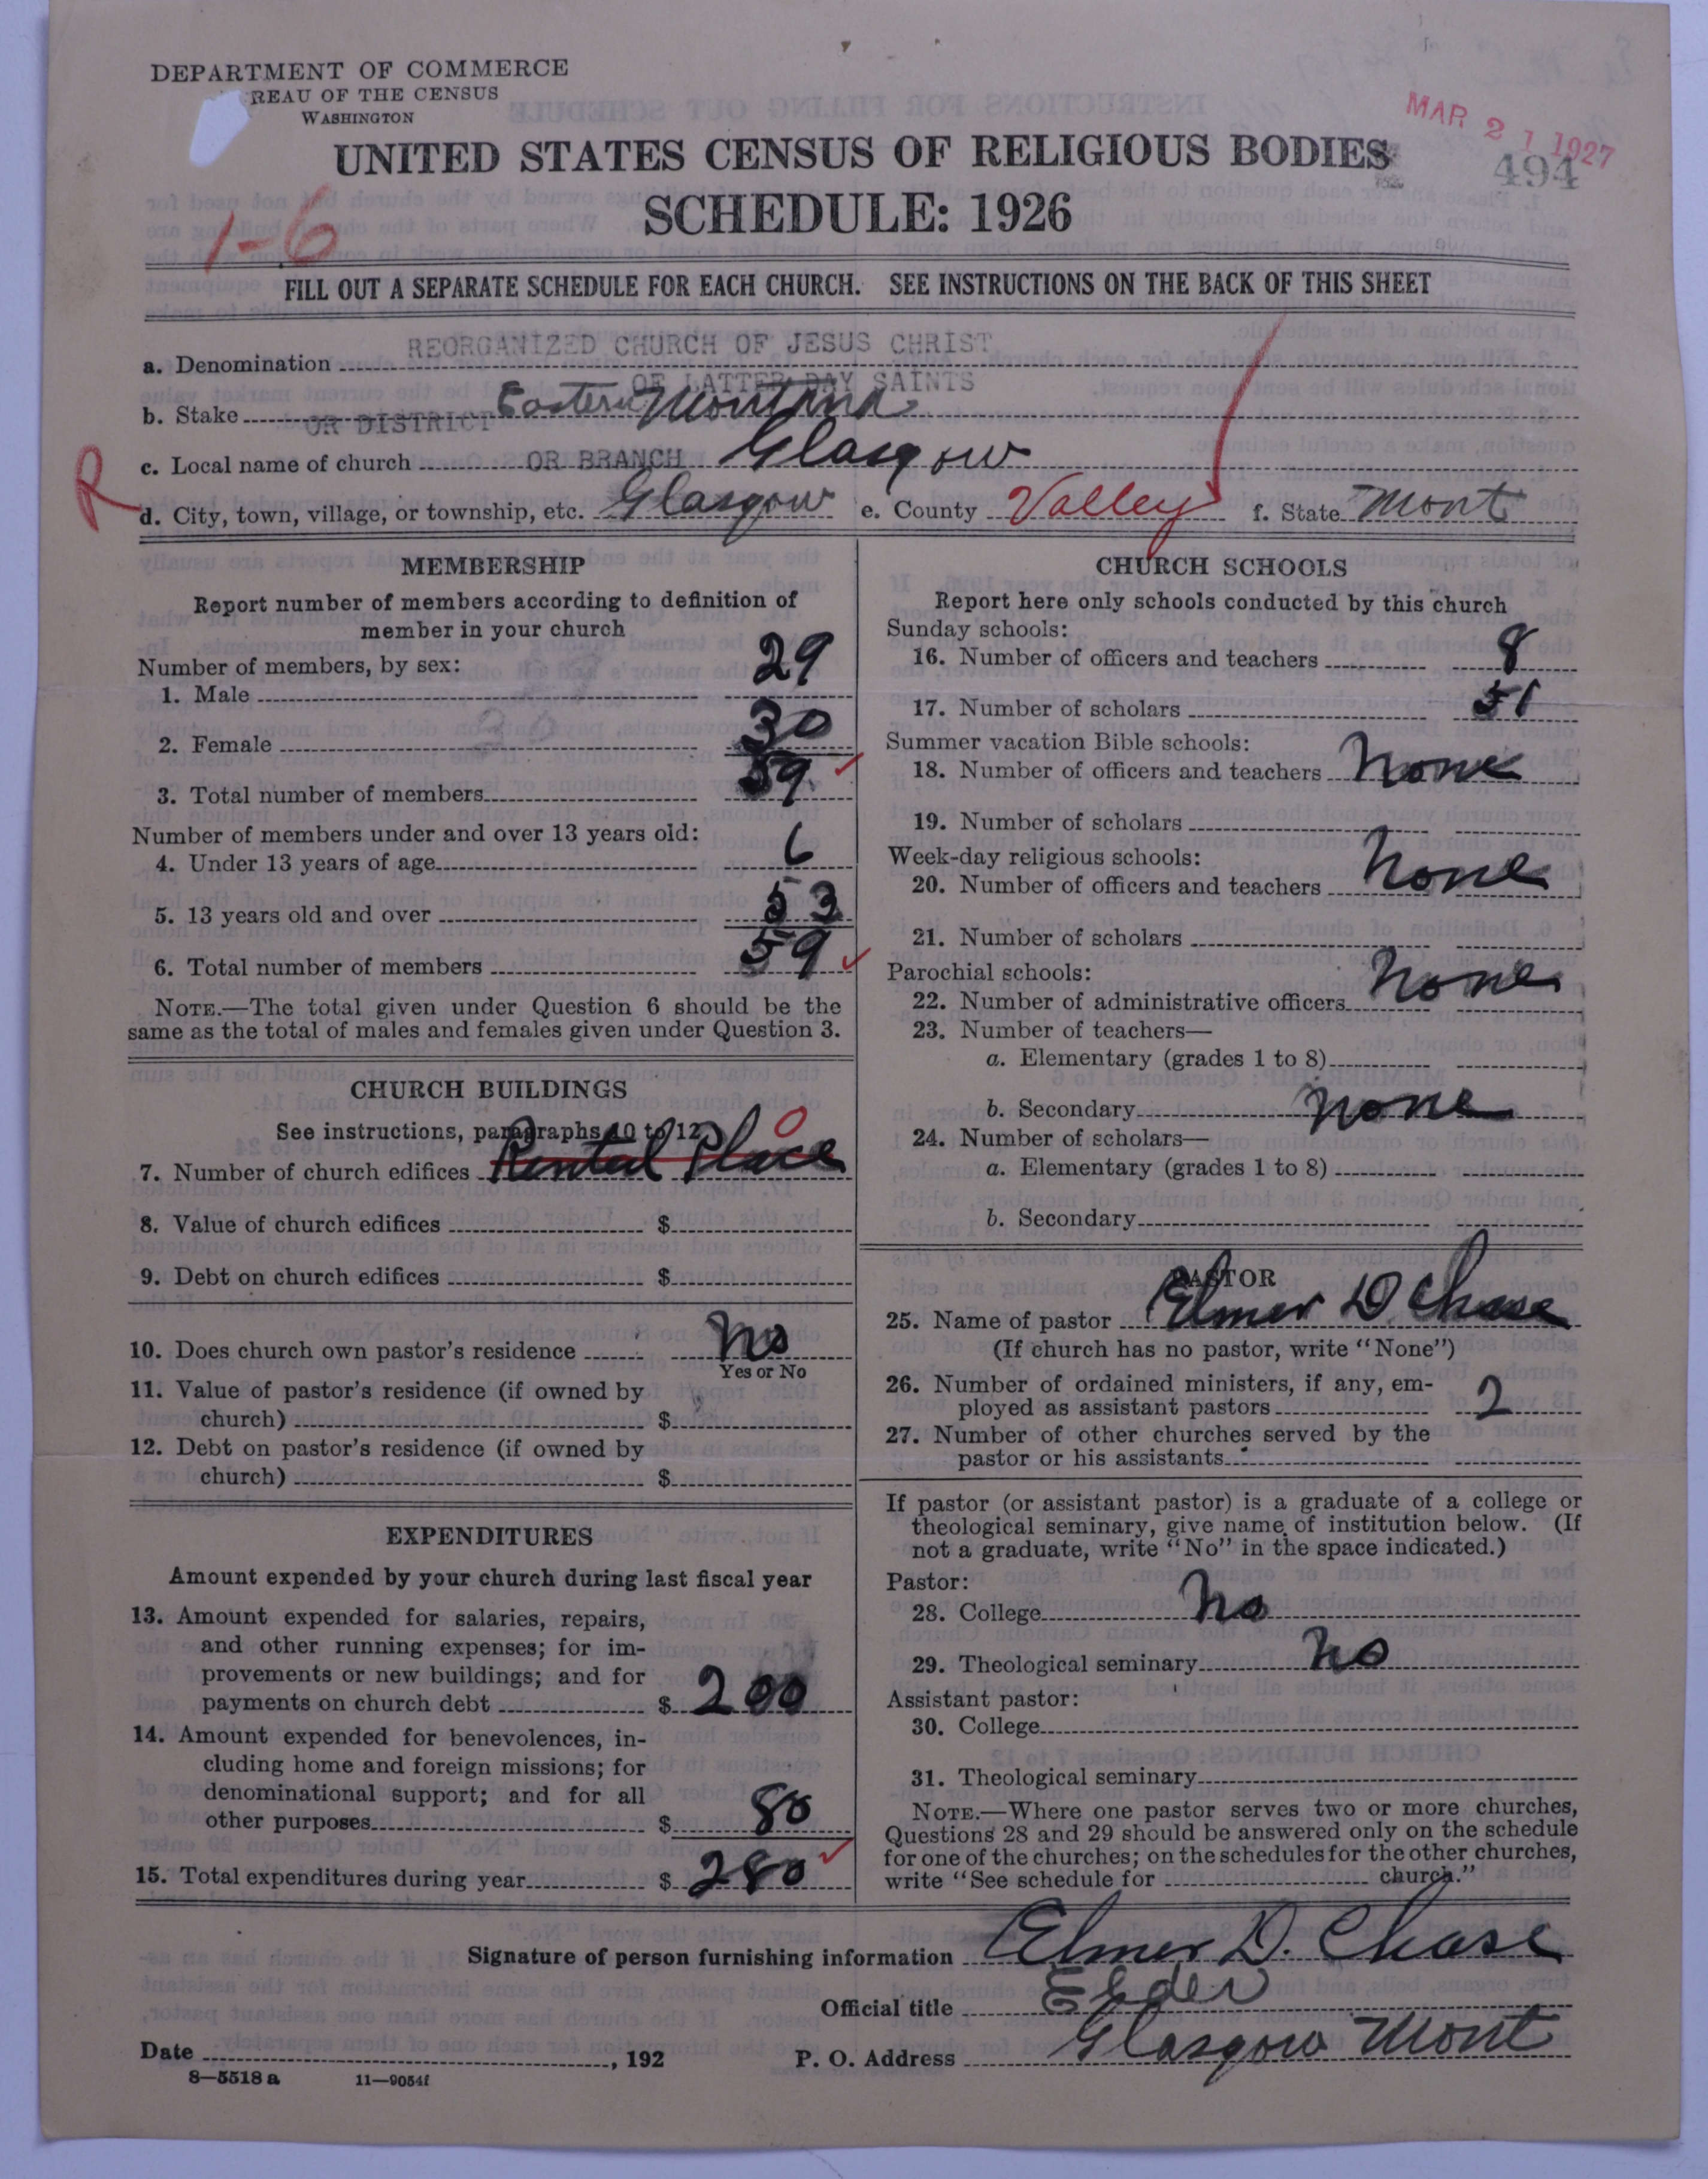 DEPARTMENT OF COMMERCE
REAU OF THE CENSUS
WASHINGTON
MAR 21 1927
494
UNITED STATES CENSUS OF RELIGIOUS BODIES
SCHEDULE: 1926
1-6
FILL OUT A SEPARATE SCHEDULE FOR EACH CHURCH. SEE INSTRUCTIONS ON THE BACK OF THIS SHEET
a. Denomination REORGANIZED CHURCH OF JESUS CHRIST
OF LATTER DAY SAINTS
b. Stake OR DISTRICT Eastern Montana
c. Local name of church OR BRANCH Glasgow
R
d. City, town, village, or township, etc. Glasgow e. County Valley f. State Mont
MEMBERSHIP
Report number of members according to definition of
member in your church
Number of members, by sex:
1. Male 29
2. Female 30
3. Total number of members 59
Number of members under and over 13 years old:
4. Under 13 years of age 6
5. 13 years old and over 53
6. Total number of members 59
NOTE.—The total given under Question 6 should be the
same as the total of males and females given under Question 3.
CHURCH BUILDINGS
See instructions, paragraphs 10 to 12
7. Number of church edifices Rented Place 0
8. Value of church edifices $
9. Debt on church edifices $
10. Does church own pastor's residence No
Yes or No
11. Value of pastor's residence (if owned by
church) $
12. Debt on pastor's residence (if owned by
church) $
EXPENDITURES
Amount expended by your church during last fiscal year
13. Amount expended for salaries, repairs,
and other running expenses; for im-
provements or new buildings; and for
payments on church debt $ 200
14. Amount expended for benevolences, in-
cluding home and foreign missions; for
denominational support; and for all
other purposes $ 80
15. Total expenditures during year $ 280
CHURCH SCHOOLS
Report here only schools conducted by this church
Sunday schools:
16. Number of officers and teachers 8
17. Number of scholars 51
Summer vacation Bible schools:
18. Number of officers and teachers None
19. Number of scholars
Week-day religious schools:
20. Number of officers and teachers None
21. Number of scholars
Parochial schools:
22. Number of administrative officers None
23. Number of teachers—
a. Elementary (grades 1 to 8)
b. Secondary None
24. Number of scholars—
a. Elementary (grades 1 to 8)
b. Secondary
PASTOR
25. Name of pastor Elmer D Chase
(If church has no pastor, write "None")
26. Number of ordained ministers, if any, em-
ployed as assistant pastors 2
27. Number of other churches served by the
pastor or his assistants
If pastor (or assistant pastor) is a graduate of a college or
theological seminary, give name of institution below. (If
not a graduate, write "No" in the space indicated.)
Pastor:
28. College No
29. Theological seminary No
Assistant pastor:
30. College
31. Theological seminary
NOTE.—Where one pastor serves two or more churches,
Questions 28 and 29 should be answered only on the schedule
for one of the churches; on the schedules for the other churches,
write "See schedule for church."
Signature of person furnishing information Elmer D. Chase
Official title Elder
Date , 192 P. O. Address Glasgow Mont
8—5518 a 11—9054f